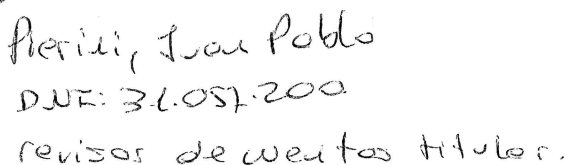 Pierini, Juan Pablo
DNI: 31.057.200
revisor de cuentas titular.